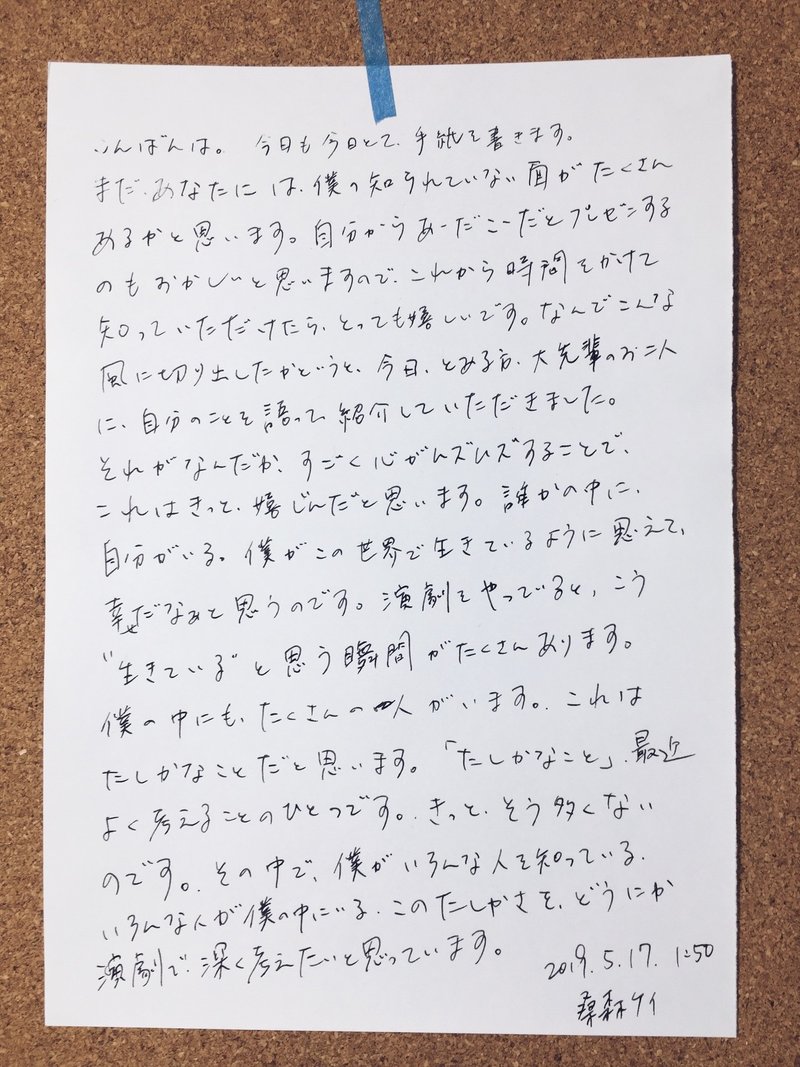 こんばんは。 今日も今日とて、手紙を書きます。
まだ、あなたには、僕の知られていない面がたくさん
あるかと思います。自分からあーだこーだとプレゼンする
のもおかしいと思いますので、これから時間をかけて
知っていただけたら、とっても嬉しいです。なんでこんな
風に切り出したかというと、今日、とある方、大先輩のお二人
に、自分のことを語って、紹介していただきました。
それがなんだか、すごく心がムズムズすることで、
これはきっと、嬉しいんだと思います。誰かの中に、
自分がいる。僕がこの世界で生きているように思えて、
幸せだなぁと思うのです。演劇をやっていると、こう
“生きている”と思う瞬間がたくさんあります。
僕の中にも、たくさんの人がいます。これは
たしかなことだと思います。「たしかなこと」、最近
よく考えることのひとつです。きっと、そう多くない
のです。その中で、僕がいろんな人を知っている、
いろんな人が僕の中にいる、このたしかさを、どうにか
演劇で、深く考えたいと思っています。
2019.5.17. 1:50
桑森ケイ